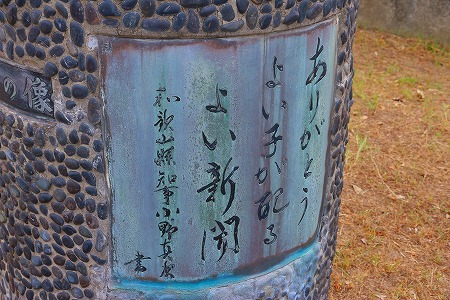 ありがとう
よい子が配る
よい新聞
和歌山縣知事小野真次
書
の像